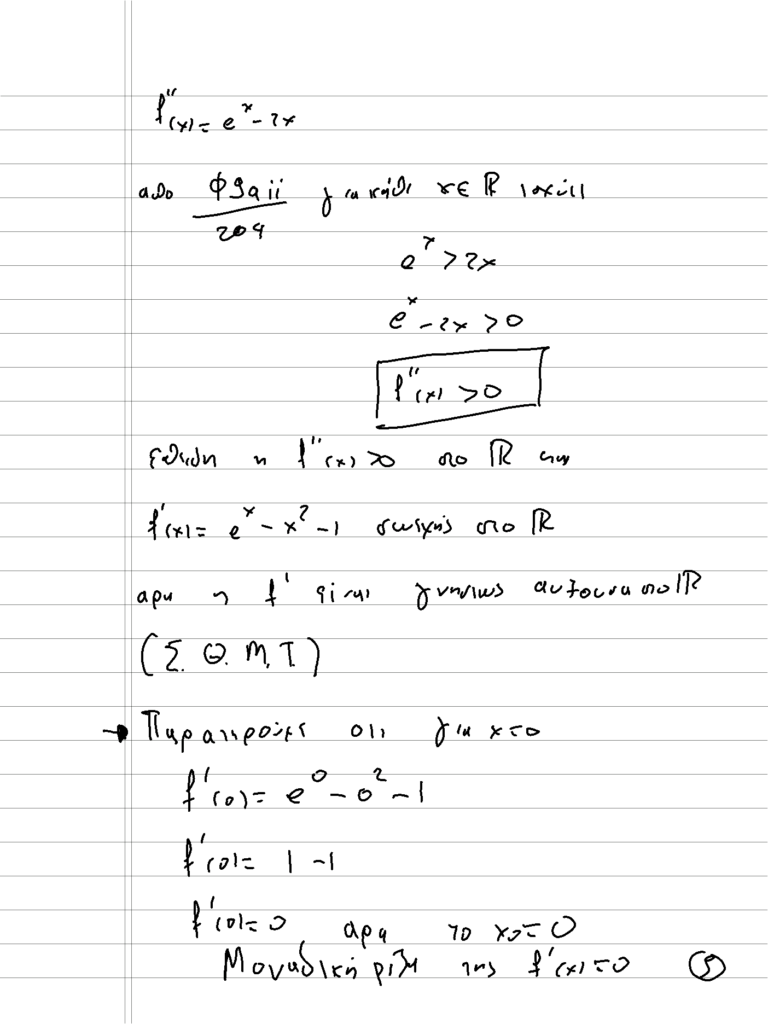 f''(x) = e^x - 2x
από Φ9αii για κάθε x ∈ ℝ ισχύει
204
e^x > 2x
e^x - 2x > 0
f''(x) > 0
Επειδη η f''(x) > 0 στο ℝ
f'(x) = e^x - x^2 - 1 συνεχής στο ℝ
αρα η f' είναι γνησιως αυξουσα στο ℝ
(Σ. Θ. Μ. Τ.)
→ Παρατηρούμε οτι για x = 0
f'(0) = e^0 - 0^2 - 1
f'(0) = 1 - 1
f'(0) = 0 αρα το x0 = 0
Μοναδική ριζα της f'(x) = 0